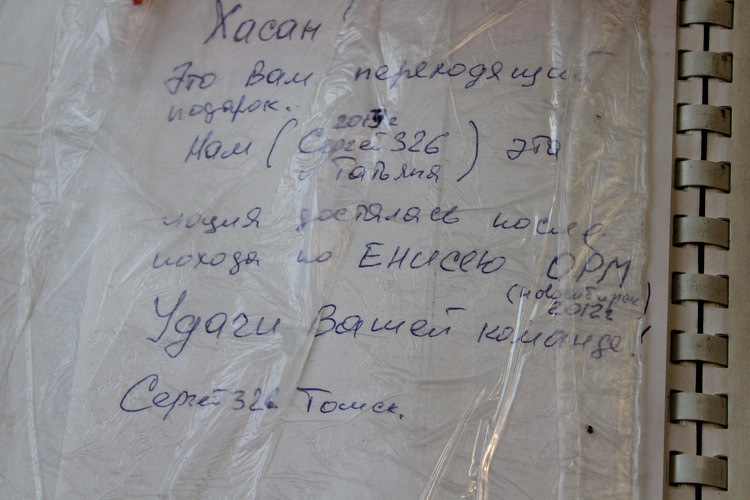 Хасан!
Это Вам переходящий
подарок.
2015г
Нам (Сергей 326 ) эта
и Татьяна
лоция досталась после
похода по ЕНИСЕЮ ОРМ
(Новосибирск)
2012г
Удачи Вашей команде!
Сергей 326 Томск.